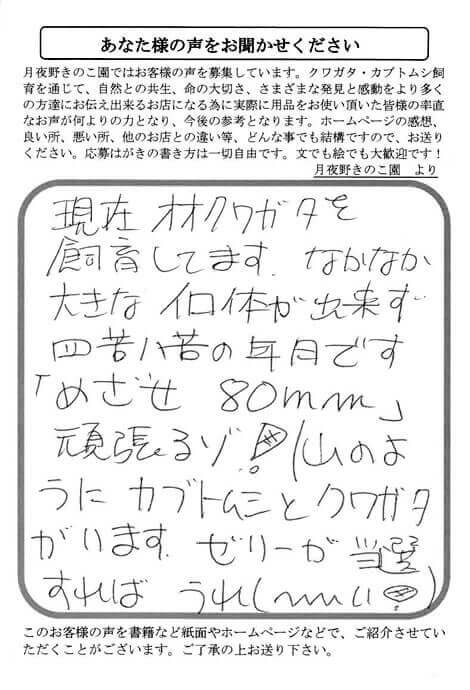 あなた様の声をお聞かせください
月夜野きのこ園ではお客様の声を募集しています。クワガタ・カブトムシ飼
育を通じて、自然との共生、命の大切さ、さまざまな発見と感動をより多く
の方達にお伝え出来るお店になる為に実際に用品をお使い頂いた皆様の率直
なお声が何よりの力となり、今後の参考となります。ホームページの感想、
良い所、悪い所、他のお店との違い等、どんな事でも結構ですので、お送り
ください。応募はがきの書き方は一切自由です。文でも絵でも大歓迎です！
月夜野きのこ園　より
現在 オオクワガタを
飼育してます. なかなか
大きな 個体が出来ず
四苦八苦の年月です
「めざせ 80mm」
頑張るゾ!(山のよ
うに カブトムシとクワガタ
がいます. ゼリーが 当選
すれば うれしいい!)
このお客様の声を書籍など紙面やホームページなどで、ご紹介させてい
ただくことがございます。ご了承の上お送り下さい。